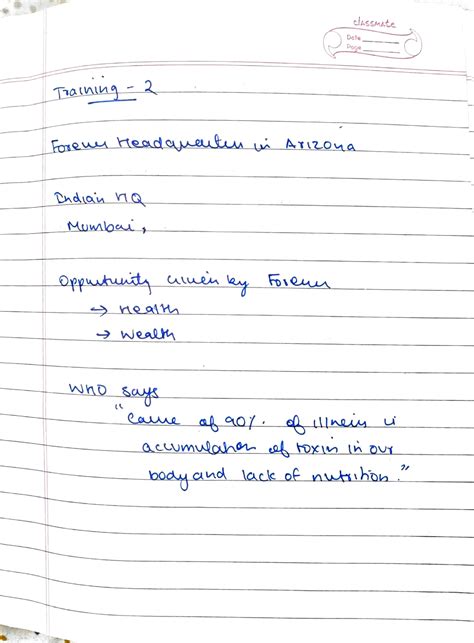 classmate
Date
Page
Training - 2
Forever Headquarters in Arizona
Indian HQ
Mumbai,
Opportunity given by Forever
→ Health
→ Wealth
WHO says
"Cause of 90% of illness is
accumulation of toxin in our
body and lack of nutrition."